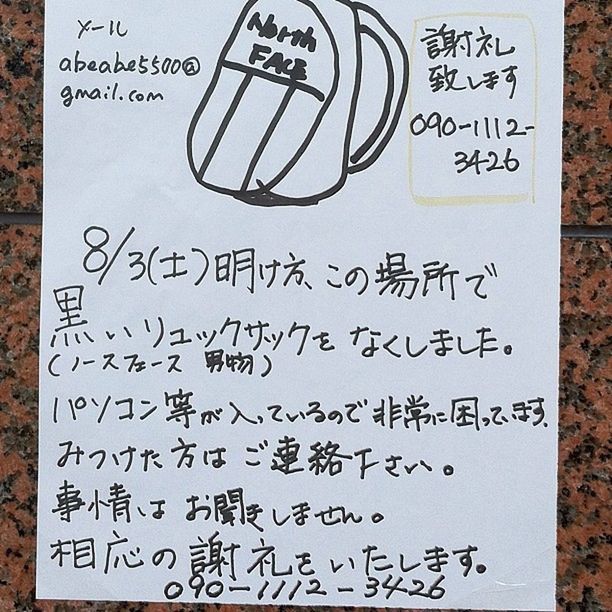 メール
abeabe5500@
gmail.com
North
FACE
謝礼
致します
090-1112-
3426
8/3(土)明け方、この場所で
黒いリュックサックを なくしました。
(ノースフェース 男物)
パソコン等が入っているので非常に困ってます、
みつけた方は ご連絡下さい。
事情は お聞きしません。
相応の謝礼をいたします。
090-1112-3426